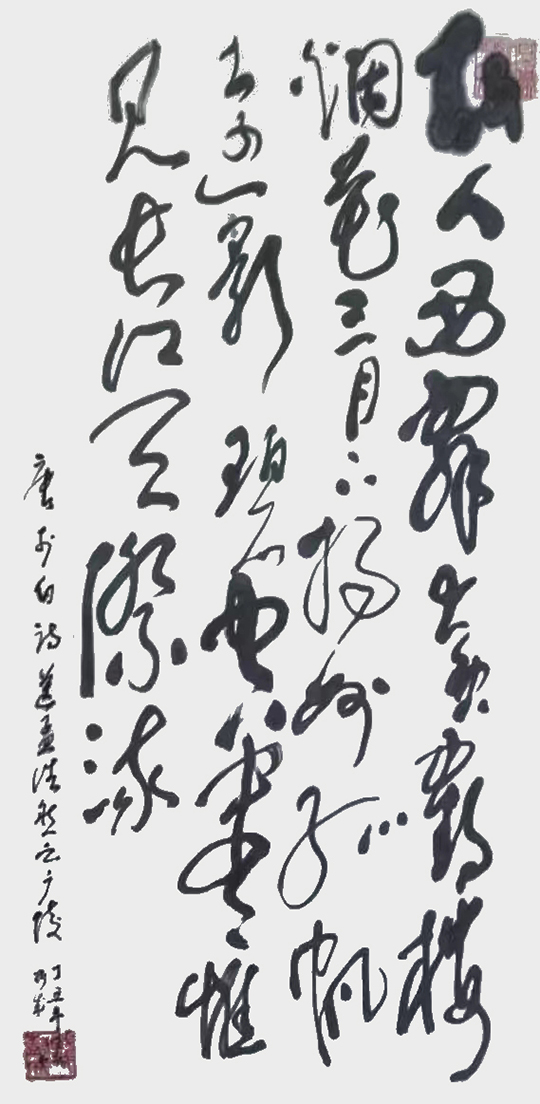 故人西辭黃鶴樓
烟花三月下揚州孤帆
遠影碧空盡惟
見長江天際流
唐李白詩送孟浩然之广陵
丁丑年